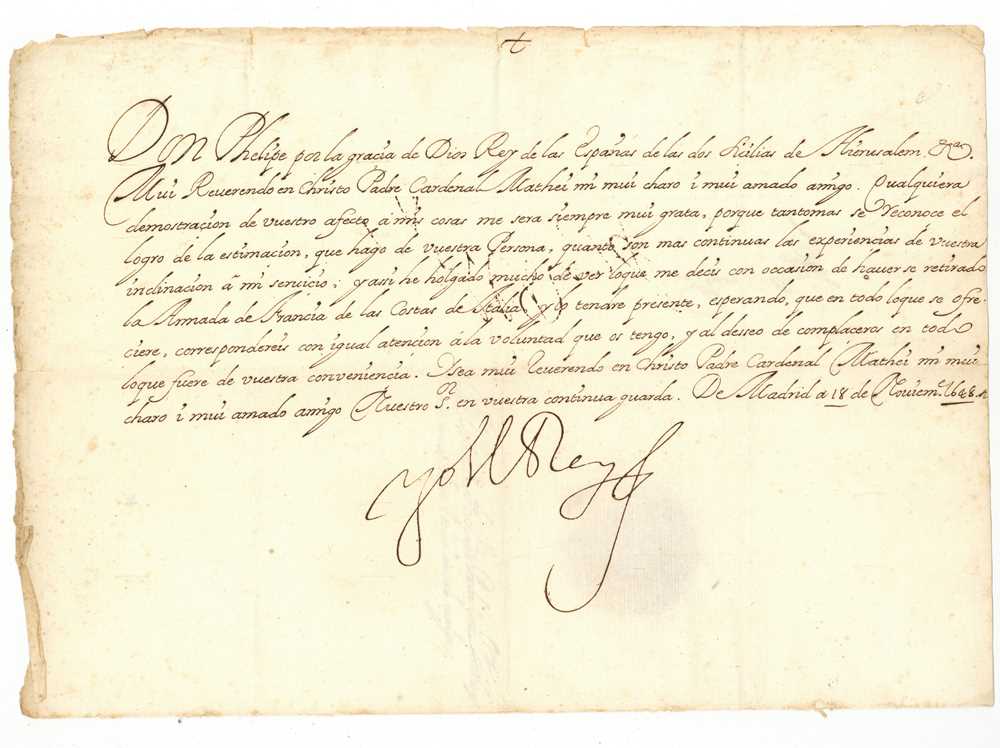 +
Don Phelipe por la gracia de Dios Rey de las Españas de las dos Sicilias de Hierusalem &ca.
Mui Reverendo en Christo Padre Cardenal Mathei mi mui charo i mui amado amigo. Qualquiera
demostracion de vuestro afecto à mis cosas me sera siempre mui grata, porque tanto mas se reconoce el
logro de la estimacion, que hago de vuestra Persona, quanto son mas continuas las experiencias de vuestra
inclinacion à mi servicio; y asi he holgado mucho de ver loque me decis con occasion de haverse retirado
la Armada de Francia de las Costas de Italia, y lo tendre presente, esperando, que en todo loque se ofre-
ciere, correspondereis con igual atencion à la voluntad que os tengo, y al desseo de complaceros en todo
loque fuere de vuestra conveniencia. I sea mui Reverendo en Christo Padre Cardenal Mathei mi mui
charo i mui amado amigo Nuestro Sr. en vuestra continua guarda. De Madrid a 18 de Noviem.e 1648.
yo el Rey